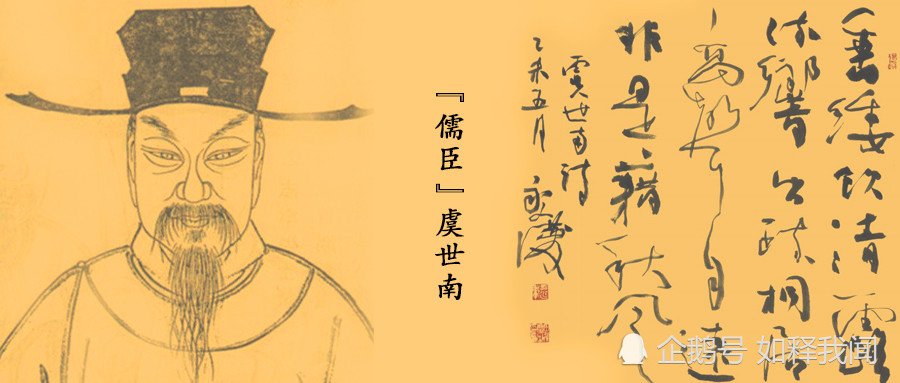 『儒臣』虞世南
垂緌飲清露
流響出疏桐居
高聲自遠
非是藉秋風
虞世南詩
乙未五月
企鹅号 如释我闻